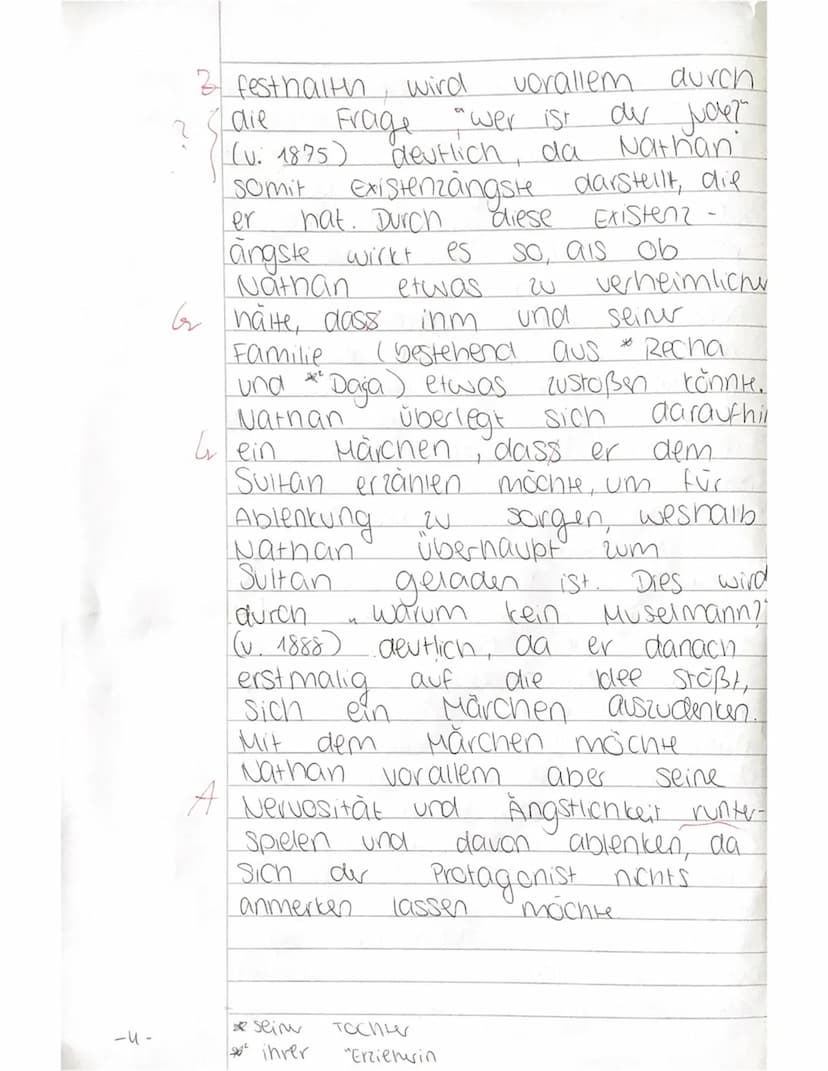 Z festhalten, wird vorallem durch
? die Frage "wer ist der Jude?"
(v. 1875) deutlich, da Nathan
somit Existenzängste darstellt, die
er hat. Durch diese Existenz-
ängste wirkt es so, als ob
Nathan etwas zu verheimlichen
hätte, dass ihm und seiner
Familie (bestehend aus * Recha
und *² Daja) etwas zustoßen könnte.
Nathan überlegt sich daraufhin
ein Märchen, dass er dem
Sultan erzählen möchte, um für
Ablenkung zu sorgen, weshalb
Nathan überhaupt zum
Sultan geladen ist. Dies wird
durch „warum kein Muselmann?"
(v. 1888) deutlich, da er danach
erstmalig auf die Idee stößt,
sich ein Märchen auszudenken.
Mit dem Märchen möchte
Nathan vorallem aber seine
A Nervosität und Ängstlichkeit runter-
spielen und davon ablenken, da
sich der Protagonist nichts
anmerken lassen möchte
* seiner Tochter
-4- *² ihrer Erzieherin